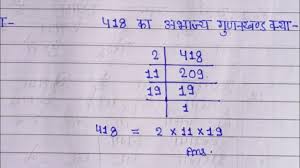 418 का अभाज्य गुणनखण्ड क्या-
2 | 418
11 | 209
19 | 19
1
418 = 2 × 11 × 19
Ans.